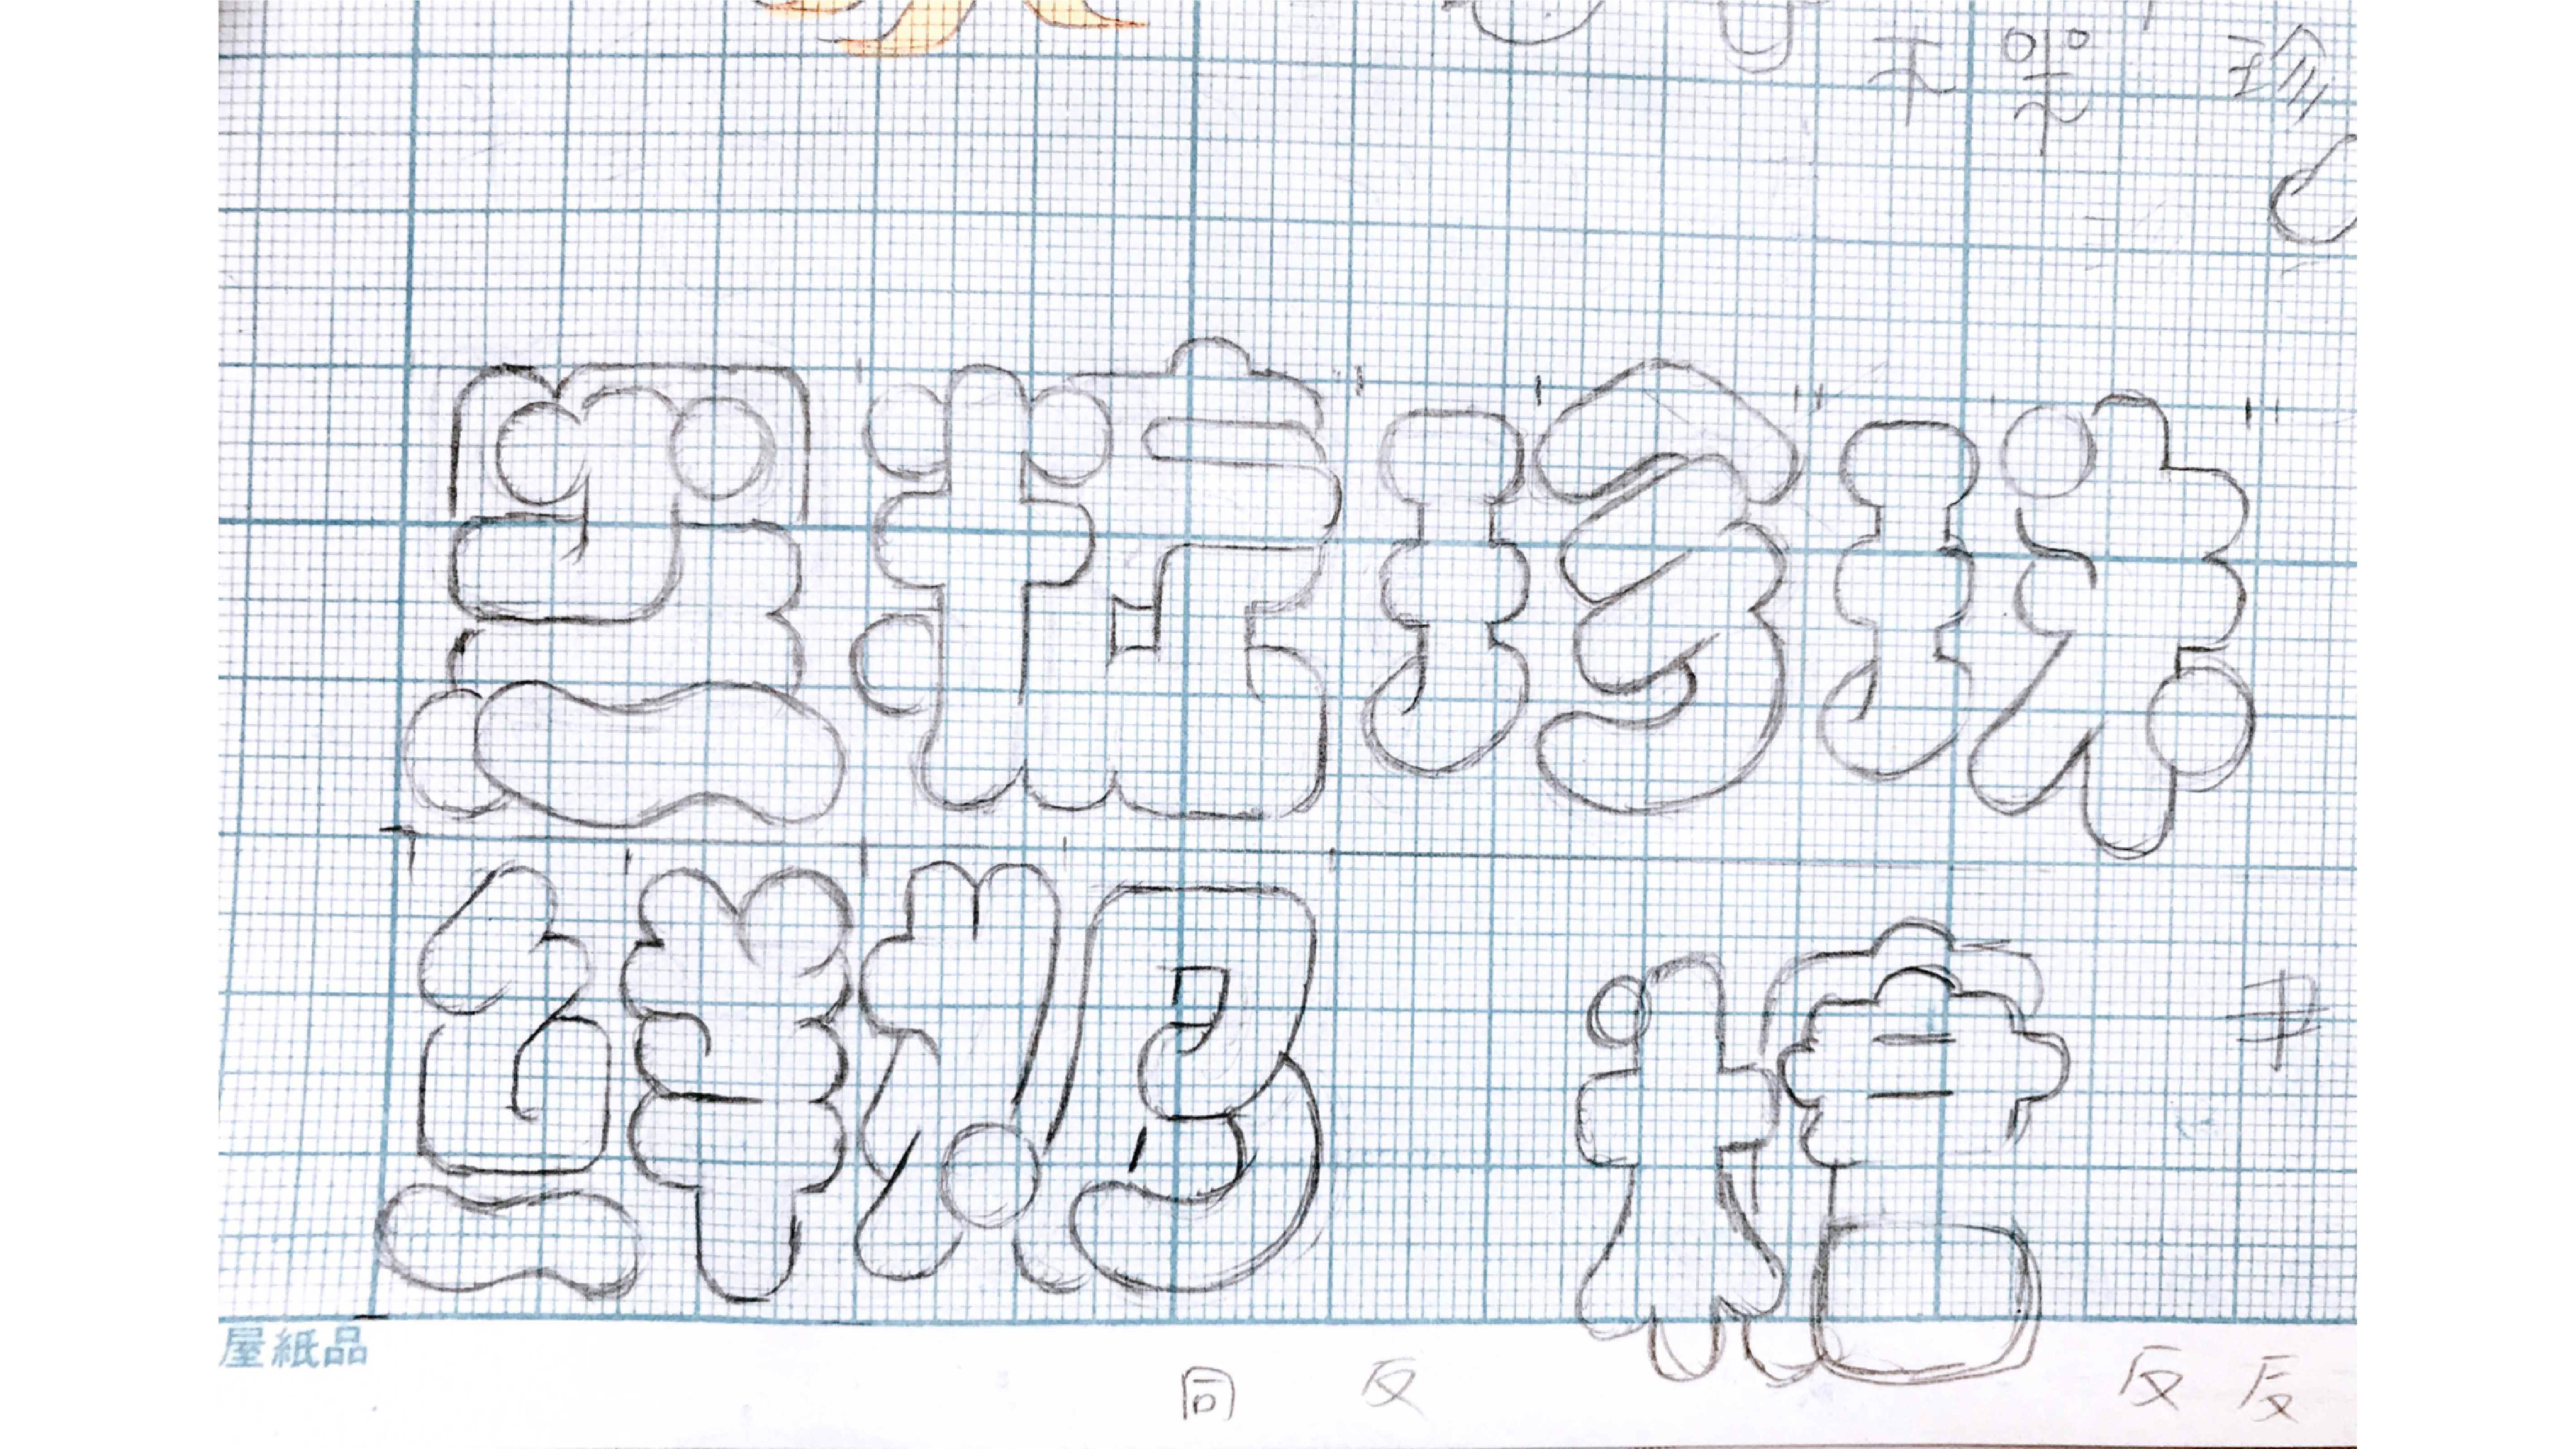 珍
黑糖珍珠
鮮奶 糖
屋紙品
同 反 反 反